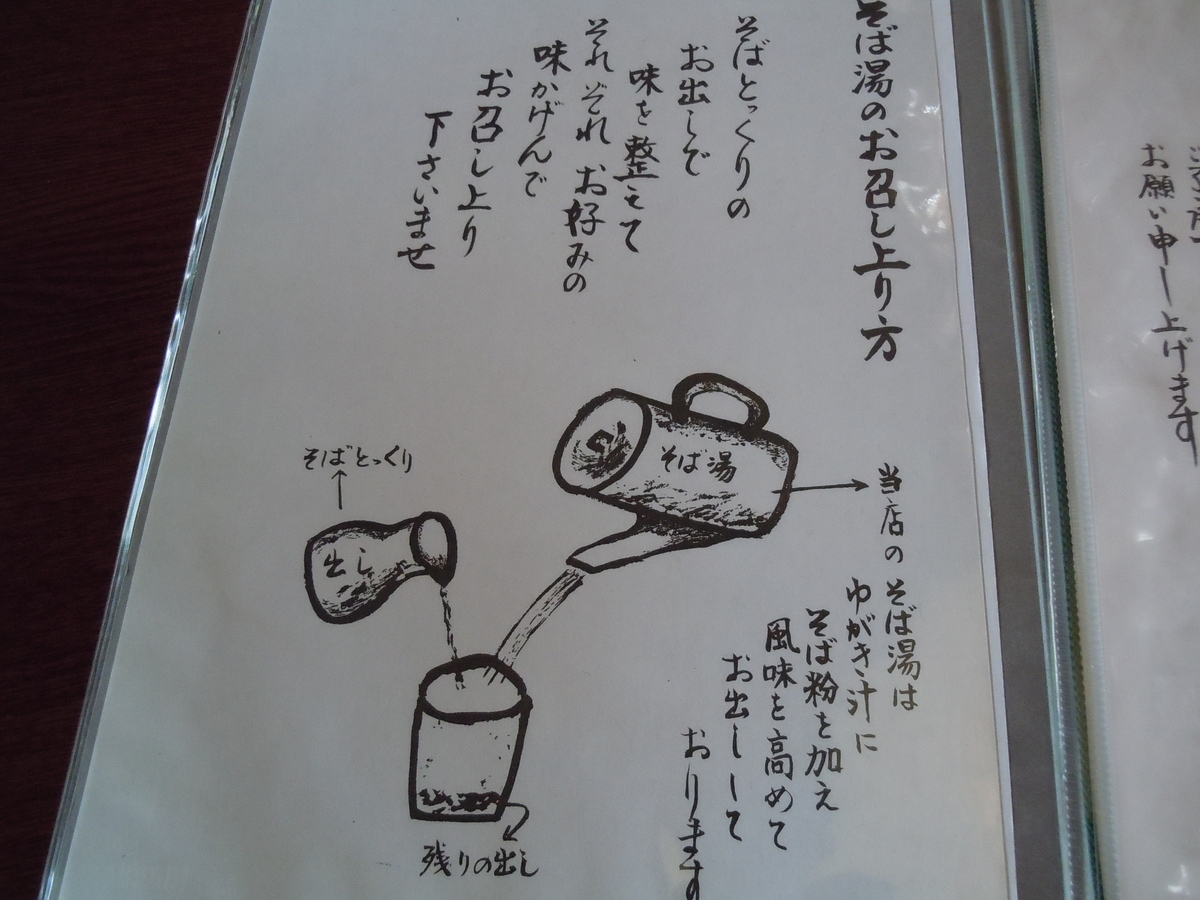 そば湯のお召し上り方
そばとっくりの
お出しで
味を整えて
それぞれお好みの
味かげんで
お召し上り
下さいませ
そばとっくり
出し
そば湯
当店のそば湯は
ゆがき汁に
そば粉を加え
風味を高めて
お出しして
おります
残りの出し
お願い申し上げます